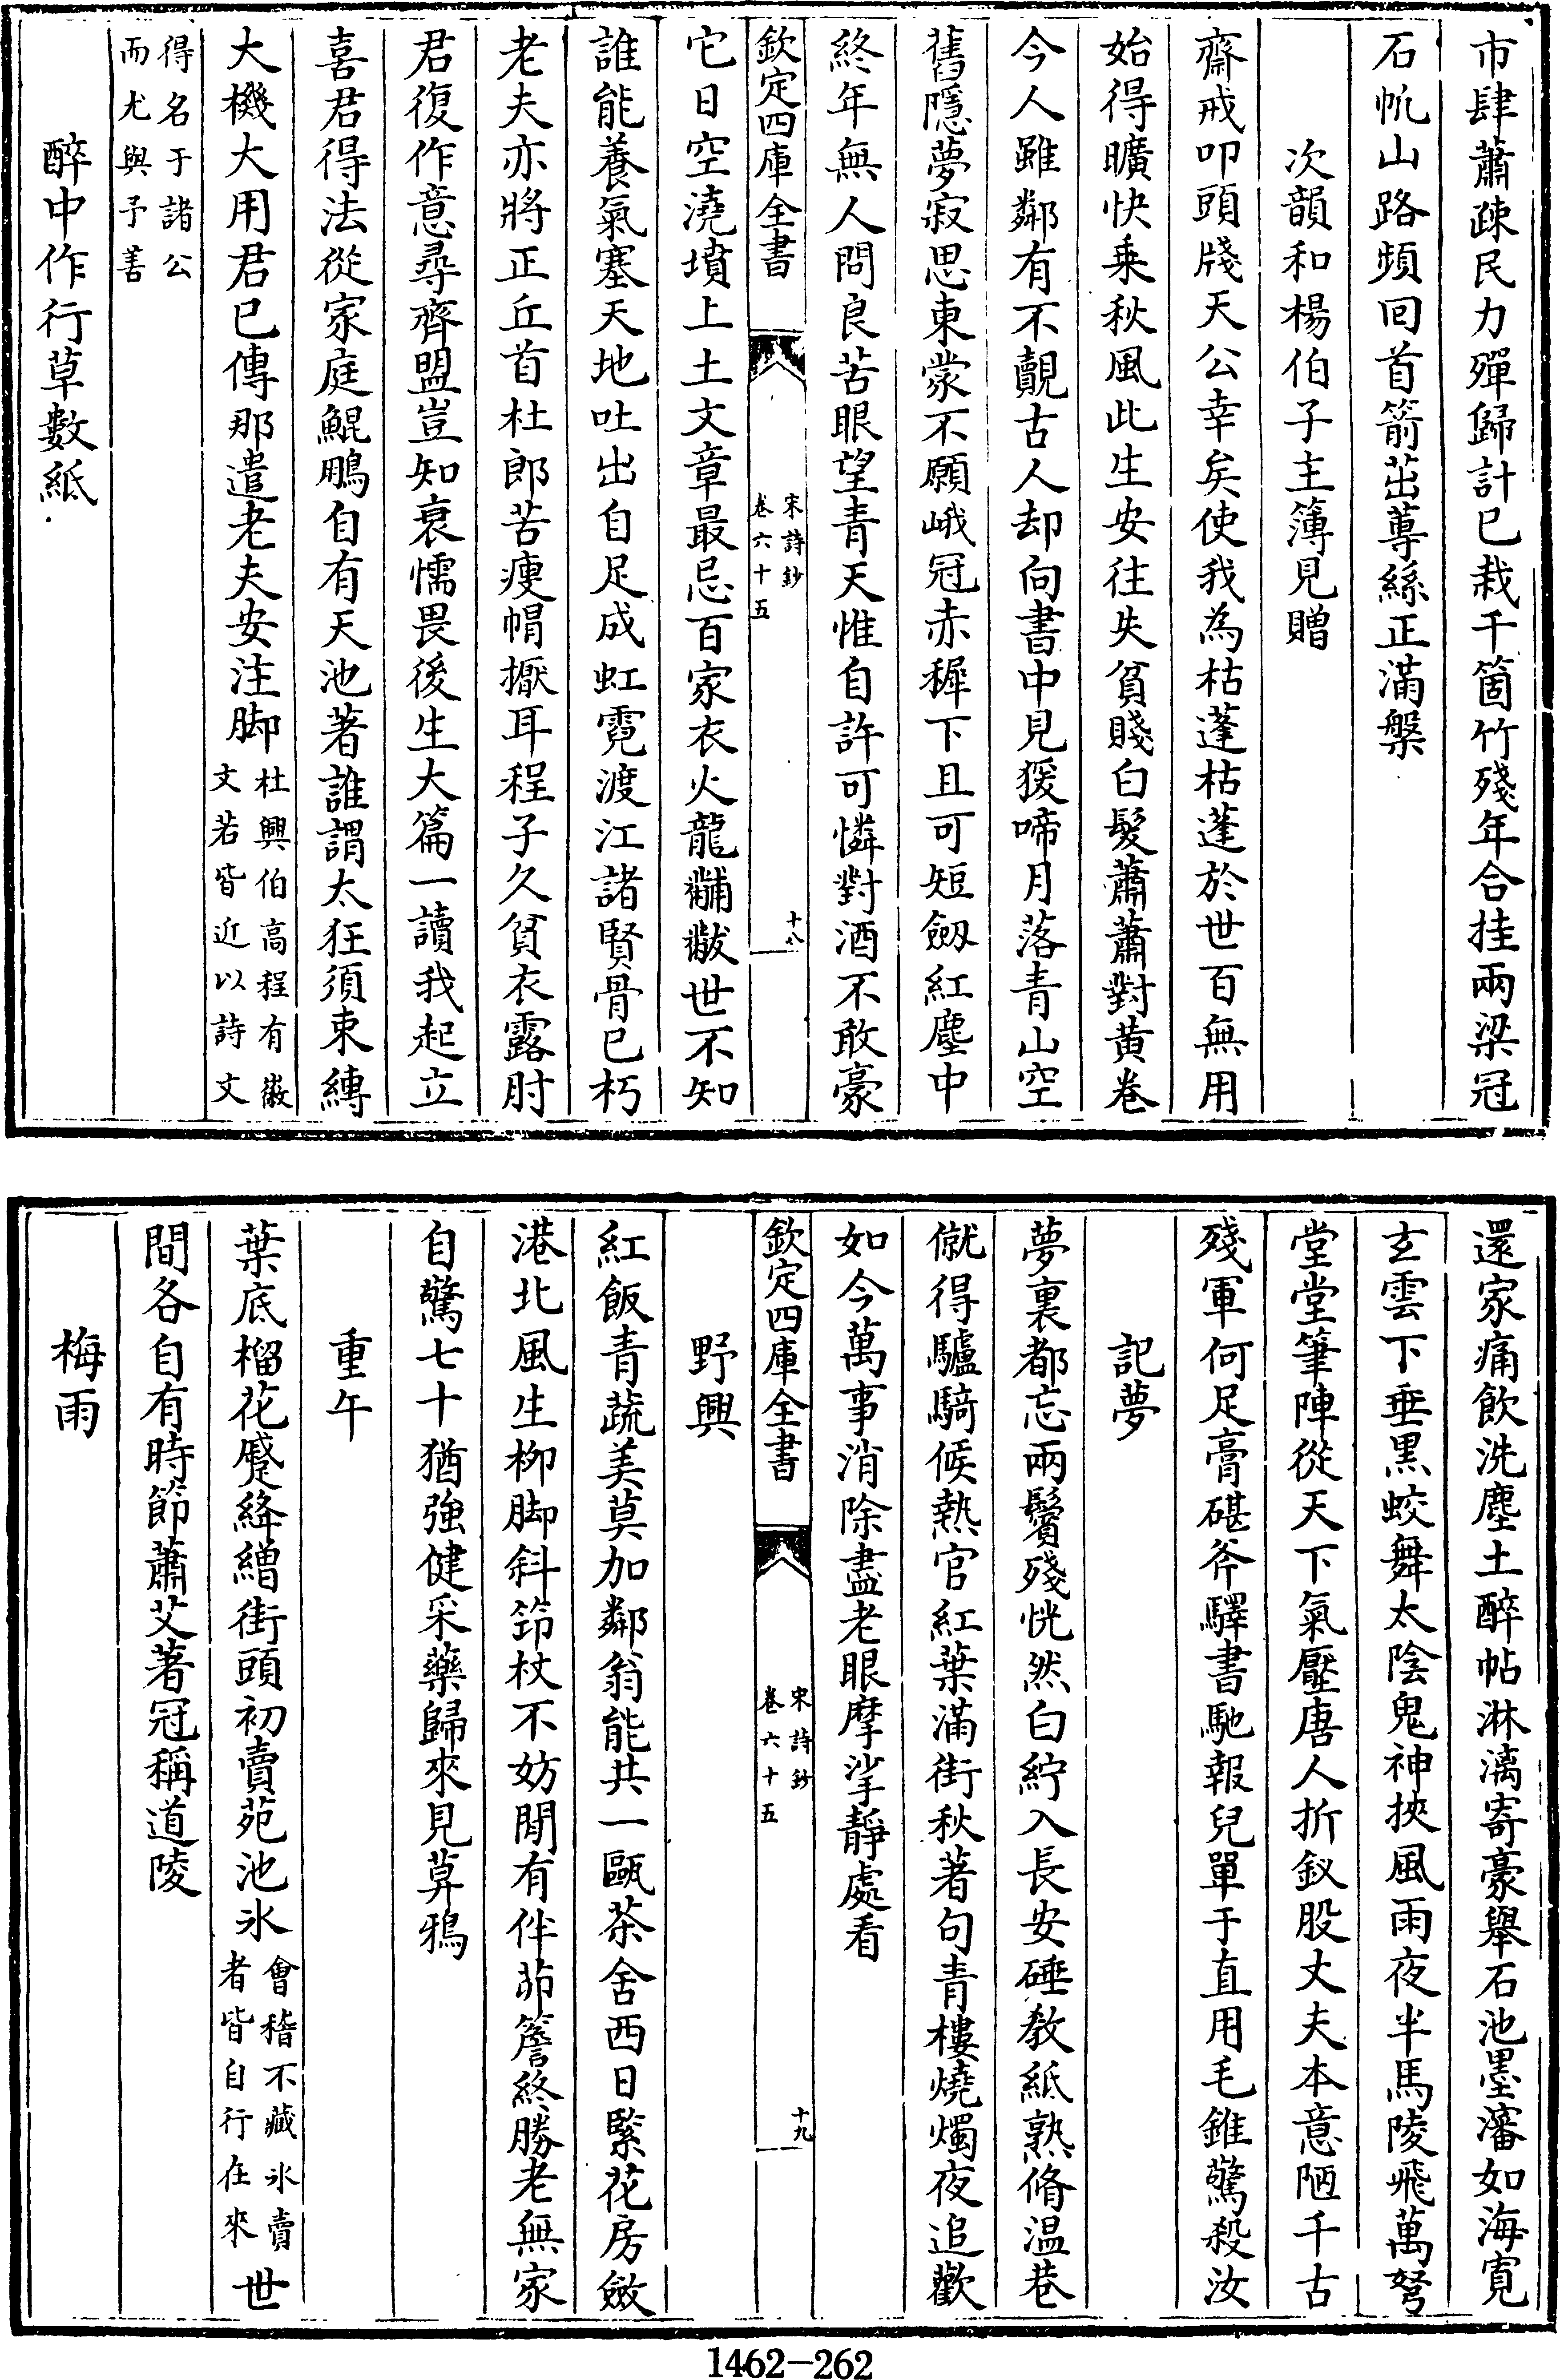 市肆蕭疎民力殫歸計已栽千箇竹殘年合挂兩梁冠
石帆山路頻回首箭茁蓴絲正滿槃
次韻和楊伯子主簿見贈
齋戒叩頭牋天公幸矣使我為枯蓬枯蓬於世百無用
始得曠快乗秋風此生安往失貧賤白髮蕭蕭對黃卷
今人雖鄰有不覿古人却向書中見猨啼月落青山空
舊隱夢寂思東蒙不願峨冠赤墀下且可短劒紅塵中
終年無人問良苦眼望青天惟自許可憐對酒不敢豪
欽定四庫全書
宋詩鈔
卷六十五
十八
它日空澆墳上土文章最忌百家衣火龍黼黻世不知
誰能養氣塞天地吐出自足成虹霓渡江諸賢骨已朽
老夫亦將正丘首杜郎苦瘦帽擫耳程子久貧衣露肘
君復作意尋齊盟豈知衰懦畏後生大篇一讀我起立
喜君得法從家庭鯤鵬自有天池著誰謂太狂須束縛
大機大用君已傳那遣老夫安注脚
杜興伯高程有徽
文若皆近以詩文
得名于諸公
而尤與予善
醉中作行草數紙
還家痛飲洗塵土醉帖淋漓寄豪舉石池墨瀋如海寛
玄雲下垂黒蛟舞太陰鬼神挾風雨夜半馬陵飛萬弩
堂堂筆陣從天下氣壓唐人折釵股丈夫本意陋千古
殘軍何足膏碪斧驛書馳報兒單于直用毛錐驚殺汝
記夢
夢裏都忘兩鬢殘恍然白紵入長安硾教紙熟脩温巷
僦得驢騎候熱官紅葉滿街秋著句青樓燒燭夜追歡
如今萬事消除盡老眼摩挲靜處看
欽定四庫全書
宋詩鈔
卷六十五
十九
野興
紅飯青蔬美莫加鄰翁能共一甌茶舍西日緊花房斂
港北風生柳脚斜笻杖不妨閒有伴茆簷終勝老無家
自驚七十猶強健采藥歸來見莫鴉
重午
葉底榴花蹙絳繒街頭初賣苑池氷
會稽不藏氷賣
者皆自行在來
世
間各自有時節蕭艾著冠稱道陵
梅雨
1462-262